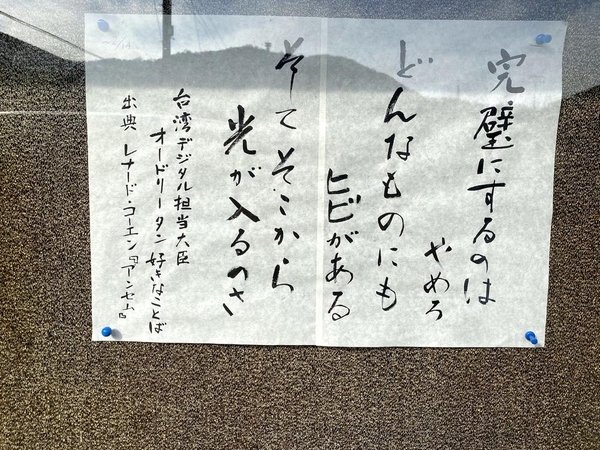 完璧にするのは
やめろ
どんなものにも
ヒビがある
そてそこから
光が入るのさ
台湾デジタル担当大臣
オードリータン好きなことば
出典 レナード・コーエン『アンセム』